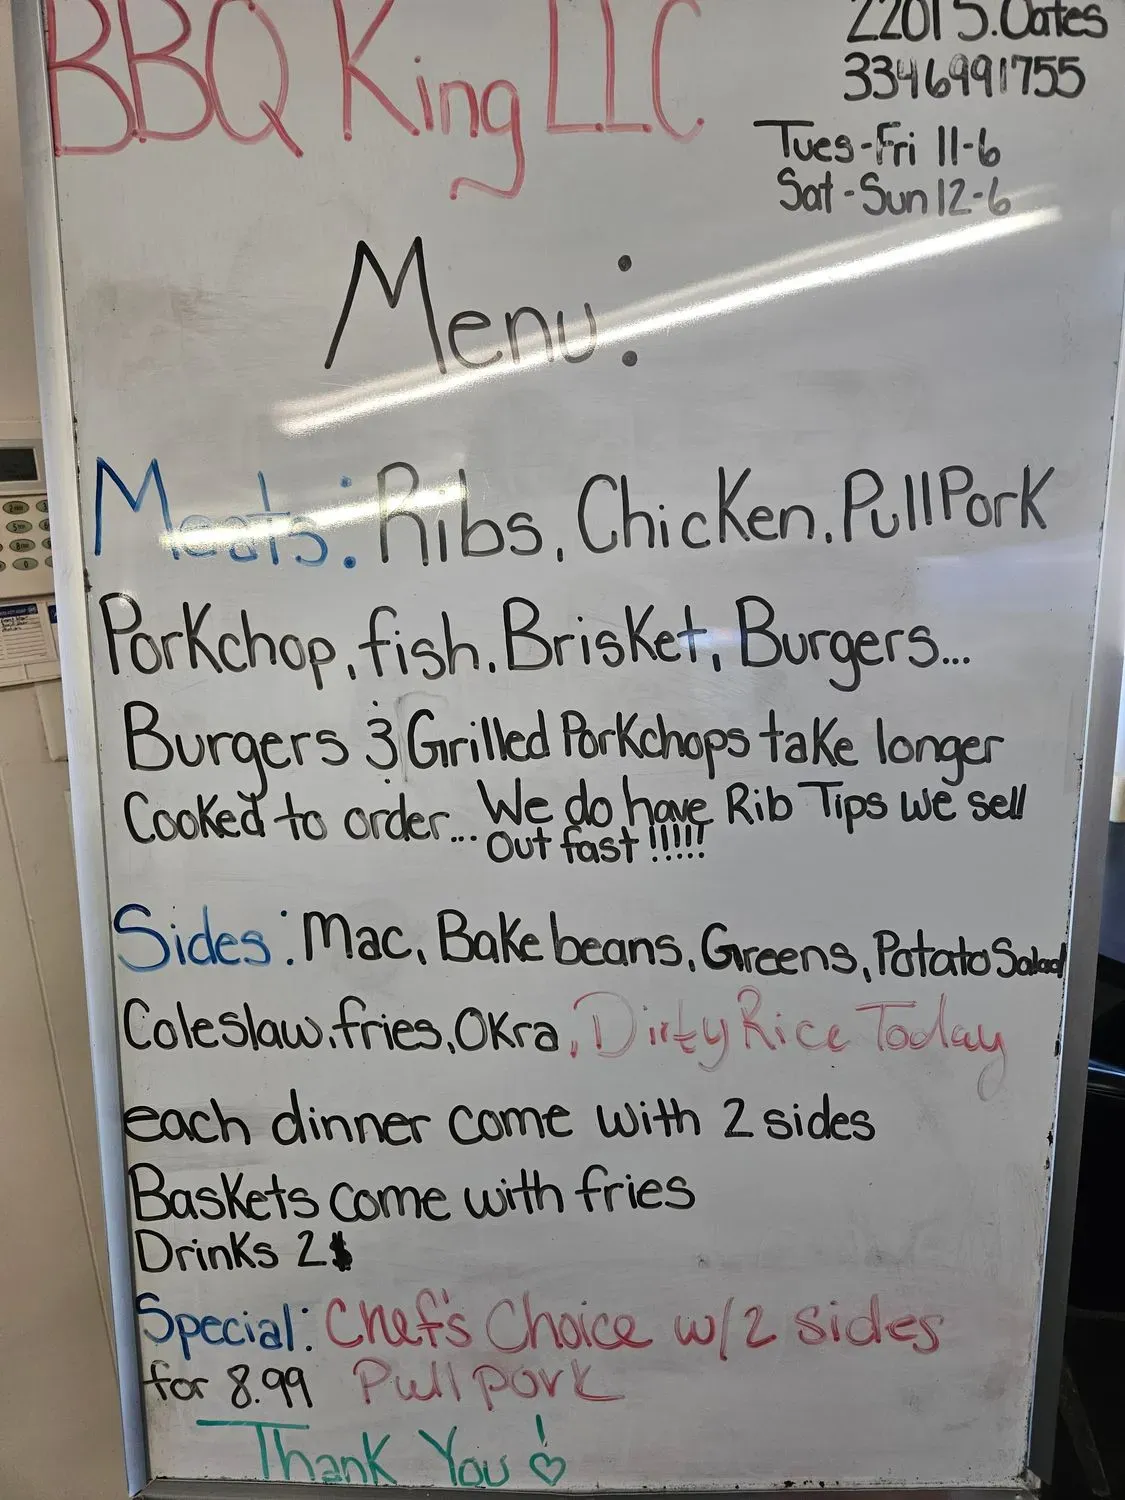 BBQ King LLC
2201 S. Oates
3346991755
Tues-Fri 11-6
Sat-Sun 12-6
Menu:
Meats: Ribs, Chicken, Pull Pork
Porkchop, fish, Brisket, Burgers...
Burgers & Grilled Porkchops take longer
Cooked to order... We do have Rib Tips we sell
out fast !!!!!
Sides: Mac, Bake beans, Greens, Potato Salad
Coleslaw, fries, Okra, Dirty Rice Today
each dinner come with 2 sides
Baskets come with fries
Drinks 2$
Special: Chef's Choice w/2 sides
for 8.99 Pull pork
Thank You! ♡